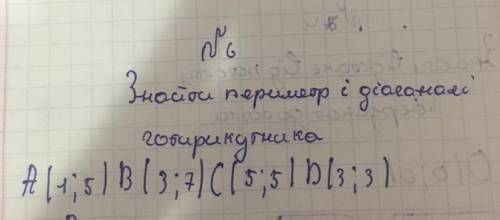 №6
Знайти периметр і діагоналі
чотирикутника
A(1;5) B(3;7) C(5;5) D(3;3)